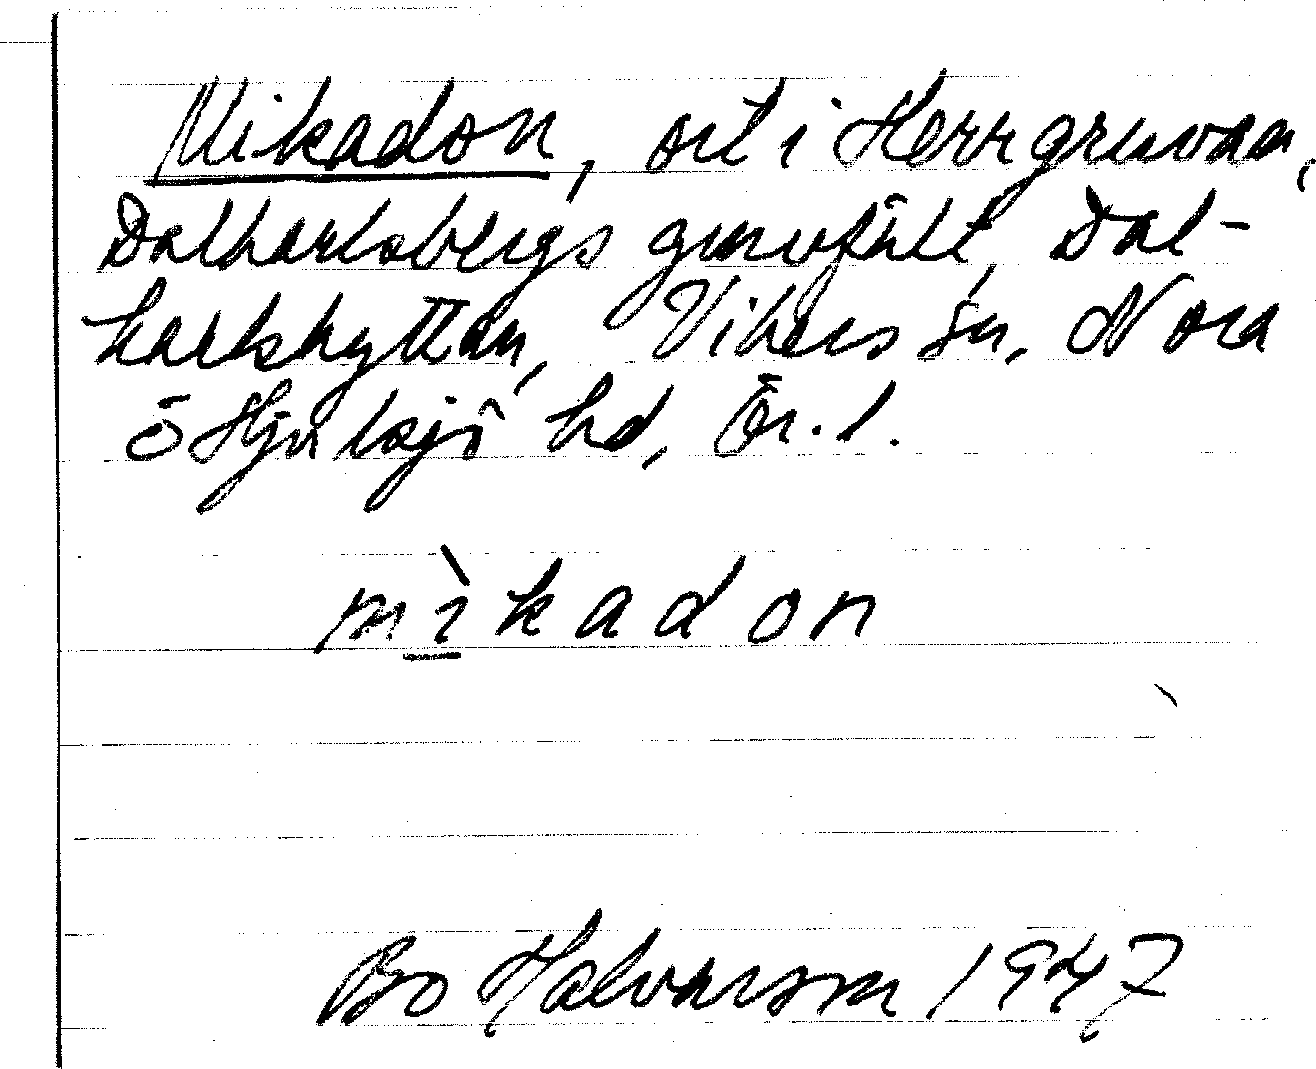 Mikadon, ort i Herrgruvan,
Dalkarlsbergs gruvfält, Dal-
karlshyttan, Vikers sn, Nora
o Hjulsjö hd, Ör. l.
mìkadon
Bo Halvarson 1947